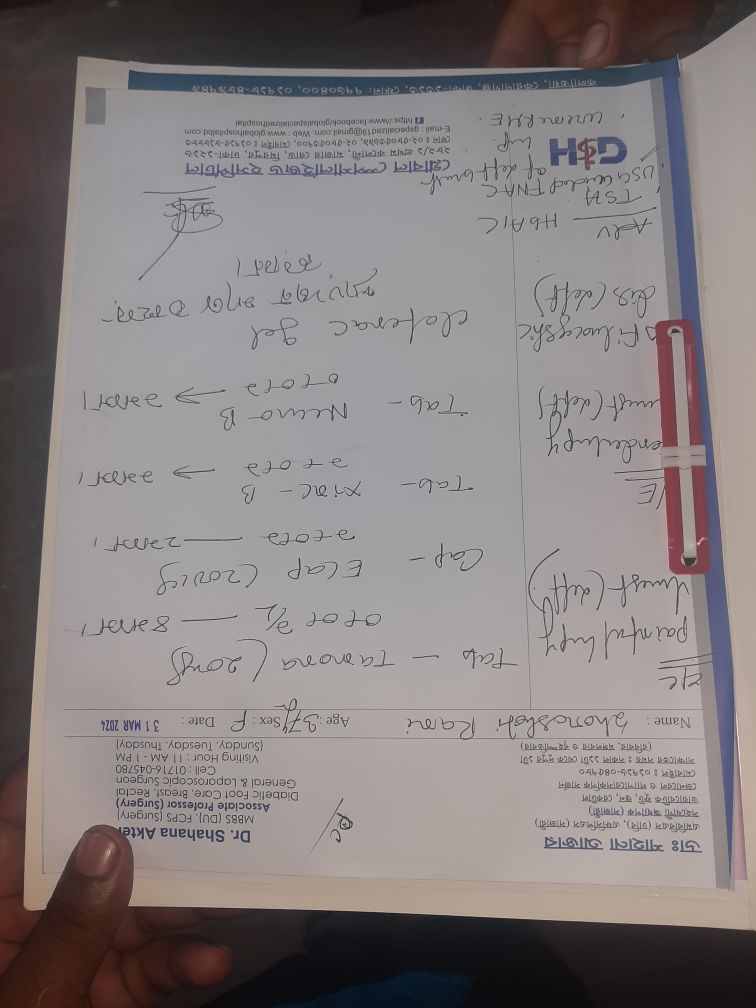 ডাঃ শাহানা আক্তার
এমবিবিএস (ঢাবি), এফসিপিএস (সার্জারী)
সহযোগী অধ্যাপক (সার্জারী)
ডায়াবেটিক ফুট, স্তন, রেকটাল
জেনারেল ও ল্যাপারোসকপিক সার্জন
মোবাইল : ০১৭১৬-০৪৫৭৮০
সাক্ষাতের সময় : সকাল ১১টা থেকে দুপুর ১টা
(রবিবার, মঙ্গলবার ও বৃহস্পতিবার)
Dr. Shahana Akte
MBBS (DU), FCPS (Surgery)
Associate Professor (Surgery)
Diabetic Foot Care, Breast, Rectal
General & Laparoscopic Surgeon
Cell : 01716-045780
Visiting Hour : 11 AM - 1 PM
(Sunday, Tuesday, Thusday)
Name : Shoroshoti Rani Age : 37y Sex : F Date : 31 MAR 2024
C/C
Painful lumpy
breast (Left)
/E
ender lumpy
breast (Left)
Fibrocystic
dis (Left)
Adv HbA1C
TSH
USG Guided FNAC
of Left breast
lump.
Urine RME.
Tab - Tamona (20mg)
০+০+ ১/২ — ৪মাস।
Cap - E Cap (200)
১+০+১ — ২মাস।
Tab - Xinc - B
১+০+১ → ২মাস।
Tab - Neuro B
০+০+১ → ২মাস।
Clofenac gel
করবেন।
GSH
গ্লোবাল স্পেশালাইজড হসপিটাল
২৮২/১ প্রথম কলোনী, মাজার রোড, মিরপুর, ঢাকা-১২১৬
ফোন : ০২-৫৮০৫৩৬৯৯, ০২-৫৮০৫৩৭০০, মোবাইল : ০১৭১৫-৮১৮৮৮৩
E-mail : gspecialized19@gmail.com, Web : www.globalhospitalbd.com
https://www.facebook/globalspecializedhospital
কলাতিয়া, কেরাণীগঞ্জ, ঢাকা-১৩১৩, ফোন: ৭৭৬০৪০০, ০১৭১৮-৪৮৯৭৪৯